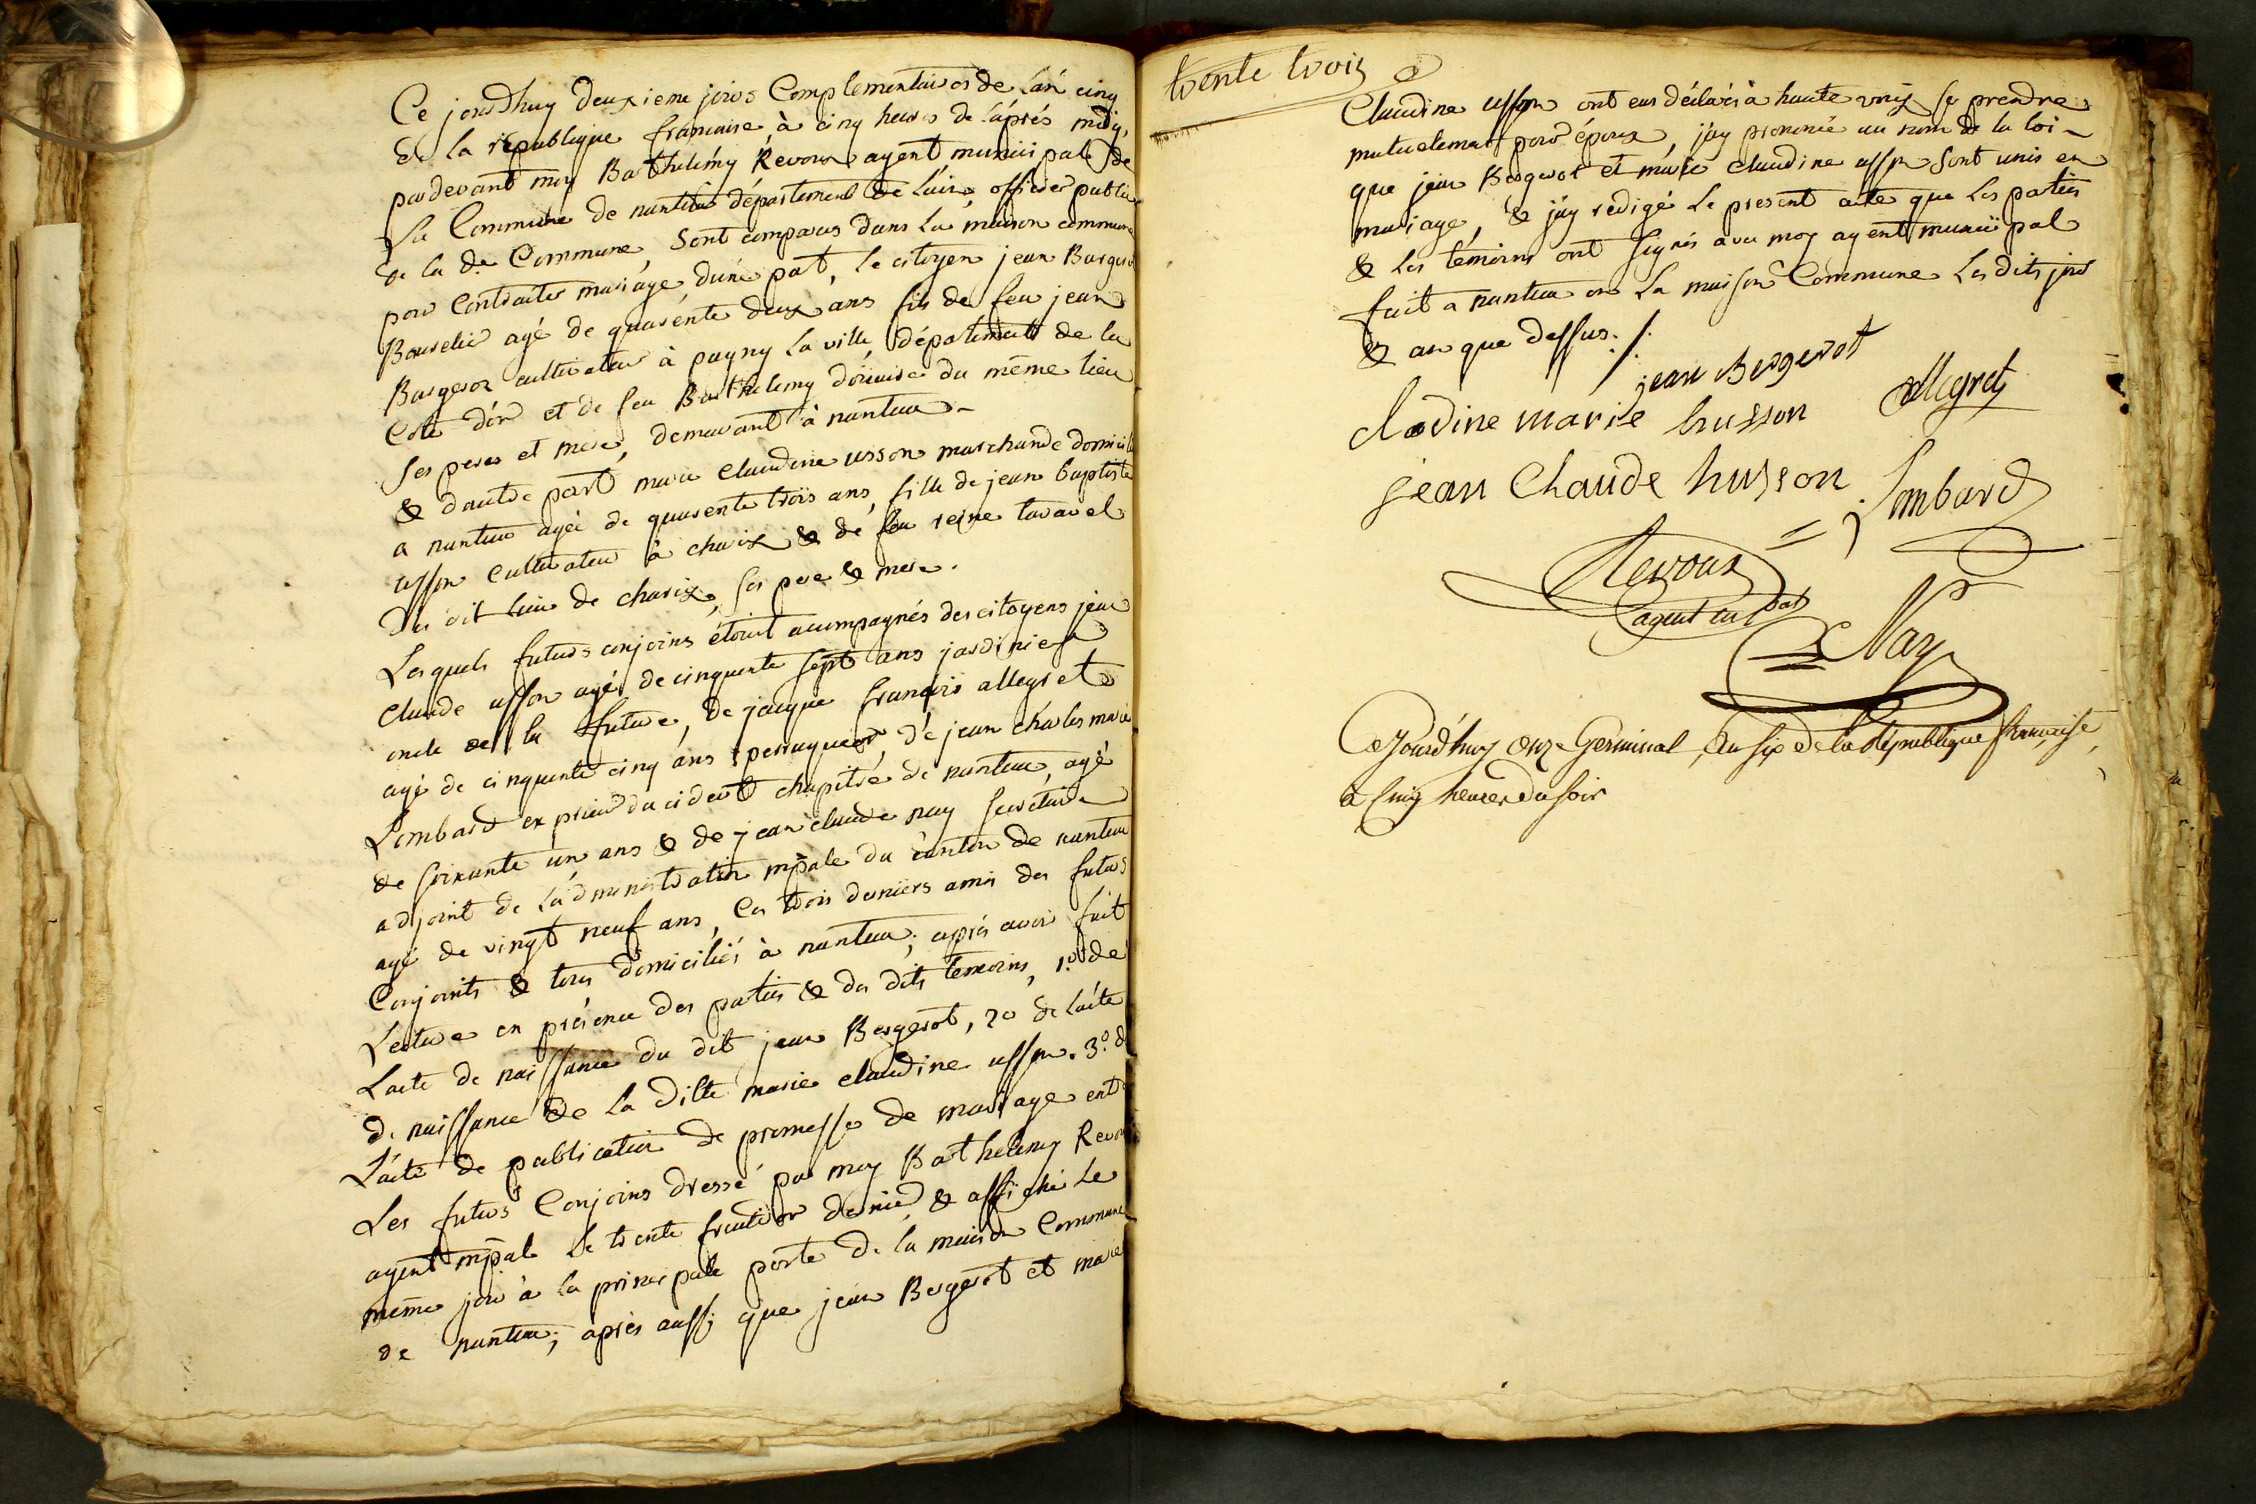 Ce jourdhuy deuxieme jours Complementaires de L'an cinq
de la république francaise à cinq heures de l'après midy,
pardevant moy Barthelémy Revoux agent municipal de
La Commune de nantua département de L'ain officier public
de la de. Commune, Sont comparus dans La maison commune
pour Contracter mariage, d'une part, le citoyen jean Bargerot
Bourelié agé de quarente deux ans fils de feu jean
Bargerot cultivateur à pagny La ville, département de la
Cote d'or et de feu Barthelemy du même lieu
ses peres et mere, demeurant à nantua -
& d'autre part marie Claudine usson marchande domicilié
a nantua agée de quarente trois ans, fille de jean baptiste
usson Cultivateur à charix & de feu reine tavavel
du dit lieu de charix, ses pere & mere.
Lesquels futurs conjoins étoint acompagnés des citoyens jean
Claude usson agé de cinquente sept ans jardinier
oncle de la future, de jacque françois allegret
agé de cinquente cinq ans perruquier, de jean charles marie
Lombard ex prieur du cidevt chapitre de nantua, agé
de soixante un ans & de jean claude nay secretaire
adjoint de L'administration mpale du canton de nantua
agé de vingt neuf ans, Ces trois derniers amis des futurs
Conjoints & tous domiciliés à nantua; après avoir fait
Lecture en présence des parties & des dits temoins, 1.º de
L'acte de naissance du dit jean Bergerot, 2º de L'acte
de naissance de la ditte marie claudine usson. 3.º de
L'acte de publication de promesse de mariage entre
Les futurs Conjoins dressé par moy Barthelemy Revoux
agent mpal Le trente fructidor dernier & affiché Le
même jour à la principale porte de la maison Commune
de nantua; après aussi que jean Bergerot et marie
trente trois
Claudine usson ont eus déclarés à haute voix se prendre
mutuelement pour époux, j'ay prononcé au nom de la loi -
que jean Bergerot et marie claudine usson sont unis en
mariage, & j'ay redigé le present acte que Les parties
& Les temoins ont signés avec moy agent municipal
fait a nantua en La maison Commune Les dits jour
& an que dessus ./.
jean Bergerot
clodine marie husson allegret
jean Chaude husson Lombard
Revoux
agent mpal
Nay
Cejourd'huy onze Germinal, an six de la République francaise,
à cinq heures du soir